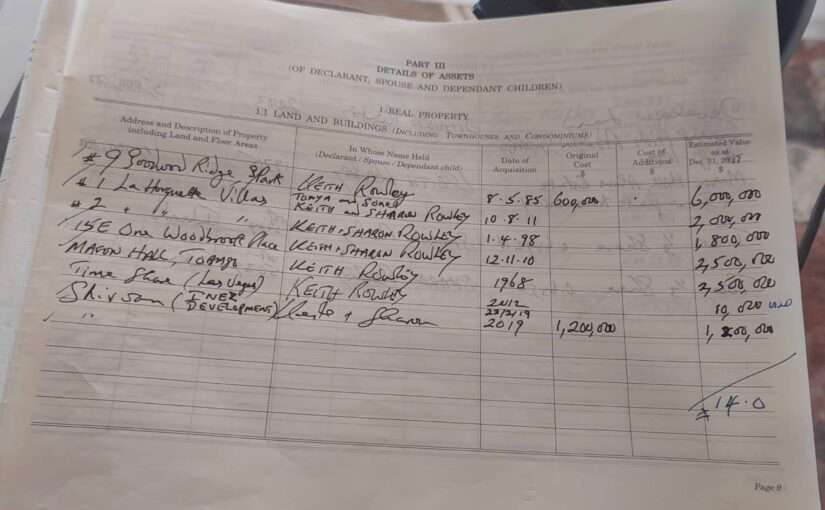 PART III
DETAILS OF ASSETS
(OF DECLARANT, SPOUSE AND DEPENDANT CHILDREN)
1. REAL PROPERTY
1.1 LAND AND BUILDINGS (INCLUDING TOWNHOUSES AND CONDOMINIUMS)
Address and Description of Property including Land and Floor Areas In Whose Name Held (Declarant / Spouse / Dependant child) Date of Acquisition Original Cost $ Cost of Additions $ Estimated Value as at Dec. 31, 20 $
#9 Goodwood Ridge Park KEITH ROWLEY 8.5.85 600,000 6,000,000
#1 La Horquette Villas TONYA and KEITH and SHARON ROWLEY 10.8.11 2,000,000
#2 " " " KEITH + SHARON ROWLEY 1.4.98 1,800,000
15E One Woodbrook Place KEITH + SHARON ROWLEY 12.11.10 2,500,000
MASON HALL, TOBAGO KEITH ROWLEY 1968 2,500,000
Time Share (Las Vegas) KEITH ROWLEY 2012 10,000
Shirvan (INEZ DEVELOPMENT) Keith + Sharon 2019 1,200,000
" "
14.0
Page 9